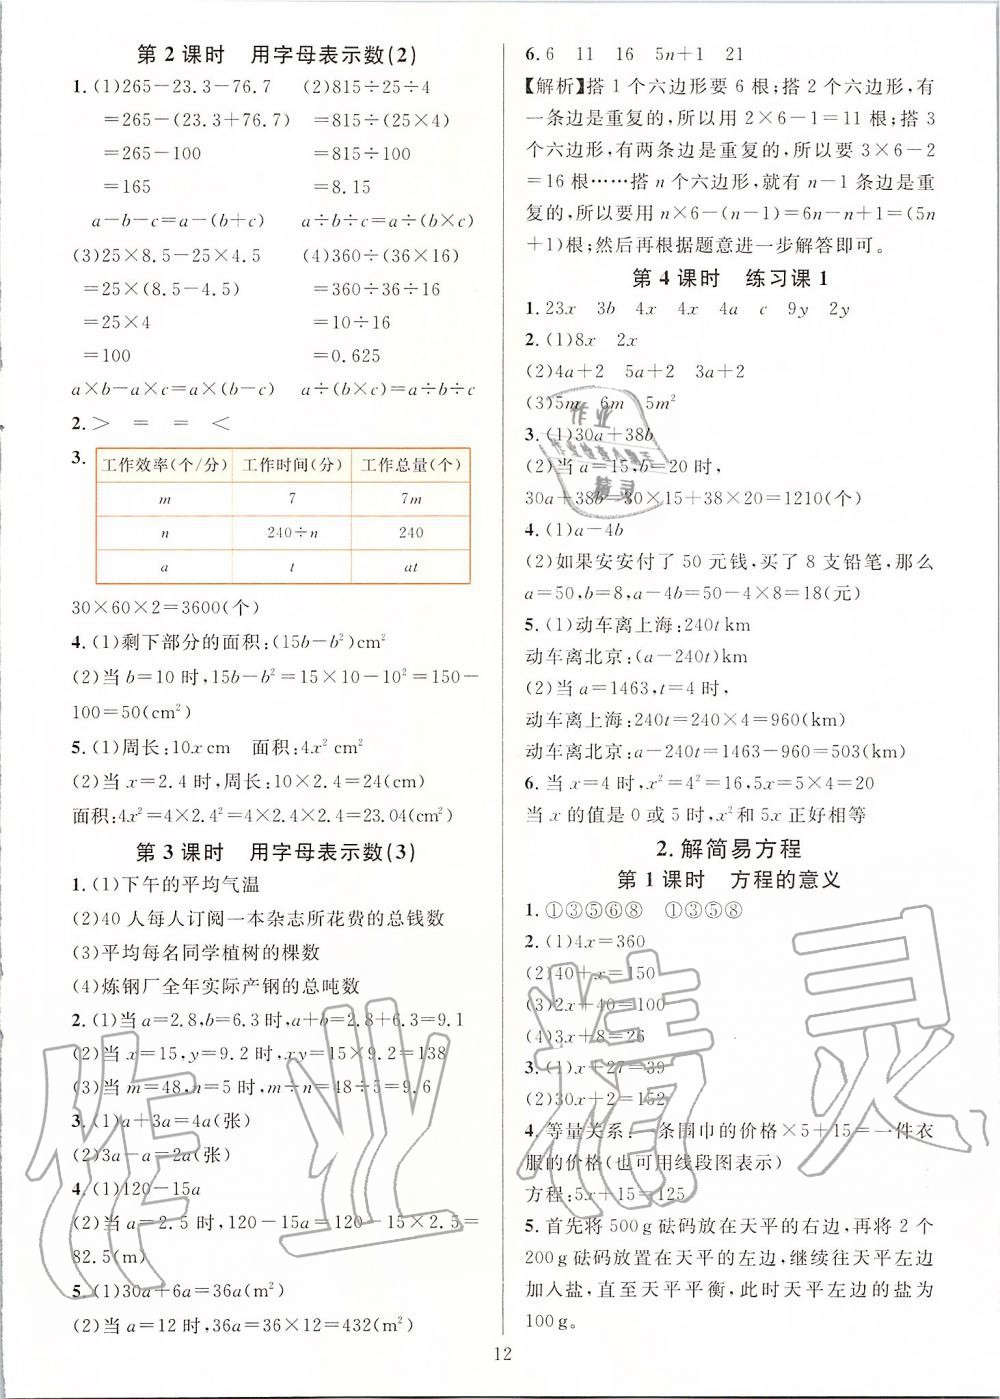 第2课时 用字母表示数(2)
1.(1)265-23.3-76.7 (2)815÷25÷4
=265-(23.3+76.7) =815÷(25×4)
=265-100 =815÷100
=165 =8.15
a-b-c=a-(b+c) a÷b÷c=a÷(b×c)
(3)25×8.5-25×4.5 (4)360÷(36×16)
=25×(8.5-4.5) =360÷36÷16
=25×4 =10÷16
=100 =0.625
a×b-a×c=a×(b-c) a÷(b×c)=a÷b÷c
2.> = = <
3.
工作效率(个/分) 工作时间(分) 工作总量(个)
m 7 7m
n 240÷n 240
a t at
30×60×2=3600(个)
4.(1)剩下部分的面积:(15b-b²)cm²
(2)当b=10时,15b-b²=15×10-10²=150-
100=50(cm²)
5.(1)周长:10x cm 面积:4x² cm²
(2)当x=2.4时,周长:10×2.4=24(cm)
面积:4x²=4×2.4²=4×2.4×2.4=23.04(cm²)
第3课时 用字母表示数(3)
1.(1)下午的平均气温
(2)40人每人订阅一本杂志所花费的总钱数
(3)平均每名同学植树的棵数
(4)炼钢厂全年实际产钢的总吨数
2.(1)当a=2.8,b=6.3时,a+b=2.8+6.3=9.1
(2)当x=15,y=9.2时,xy=15×9.2=138
(3)当m=48,n=5时,m÷n=48÷5=9.6
3.(1)a+3a=4a(张)
(2)3a-a=2a(张)
4.(1)120-15a
(2)当a=2.5时,120-15a=120-15×2.5=
82.5(m)
5.(1)30a+6a=36a(m²)
(2)当a=12时,36a=36×12=432(m²)
6.6 11 16 5n+1 21
【解析】搭1个六边形要6根;搭2个六边形,有
一条边是重复的,所以用2×6-1=11根;搭3
个六边形,有两条边是重复的,所以要3×6-2
=16根……搭n个六边形,就有n-1条边是重
复的,所以要用n×6-(n-1)=6n-n+1=(5n
+1)根;然后再根据题意进一步解答即可。
第4课时 练习课1
1.23x 3b 4x 4x 4a c 9y 2y
2.(1)8x 2x
(2)4a+2 5a+2 3a+2
(3)5m 6m 5m²
3.(1)30a+38b
(2)当a=15,b=20时,
30a+38b=30×15+38×20=1210(个)
4.(1)a-4b
(2)如果安安付了50元钱,买了8支铅笔,那么
a=50,b=8,a-4b=50-4×8=18(元)
5.(1)动车离上海:240t km
动车离北京:(a-240t)km
(2)当a=1463,t=4时,
动车离上海:240t=240×4=960(km)
动车离北京:a-240t=1463-960=503(km)
6.当x=4时,x²=4²=16,5x=5×4=20
当x的值是0或5时,x²和5x正好相等
2.解简易方程
第1课时 方程的意义
1.①③⑤⑥⑧ ①③⑤⑧
2.(1)4x=360
(2)40+x=150
(3)2x+40=100
(4)3x+8=26
3.(1)x+27=39
(2)30x=152
4.等量关系:一条围巾的价格×5+15=一件衣
服的价格(也可用线段图表示)
方程:5x+15=125
5.首先将500g砝码放在天平的右边,再将2个
200g砝码放置在天平的左边,继续往天平左边
加入盐,直至天平平衡,此时天平左边的盐为
100g。
12
作业精灵
作业
精灵